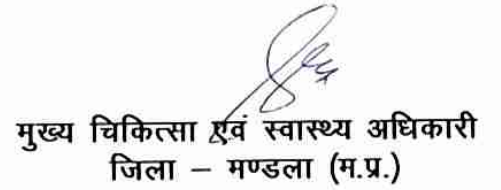 मुख्य चिकित्सा एवं स्वास्थ्य अधिकारी
जिला – मण्डला (म.प्र.)